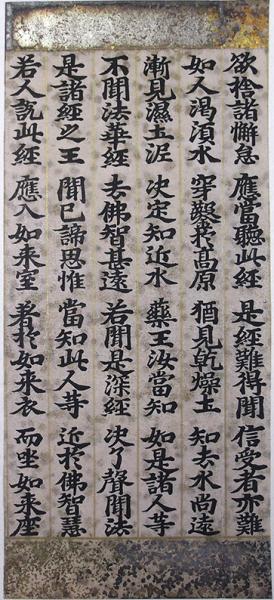 欲捨諸懈怠 應當聽此經 是經難得聞 信受者亦難
如人渇湏水 穿鑿於髙原 猶見乾燥土 知去水尚遠
漸見濕土泥 决定知近水 藥王汝當知 如是諸人等
不聞法華經 去佛智甚遠 若聞是深經 决了聲聞法
是諸經之王 聞已諦思惟 當知此人等 近於佛智慧
若人說此經 應入如來室 著於如來衣 而坐如來座